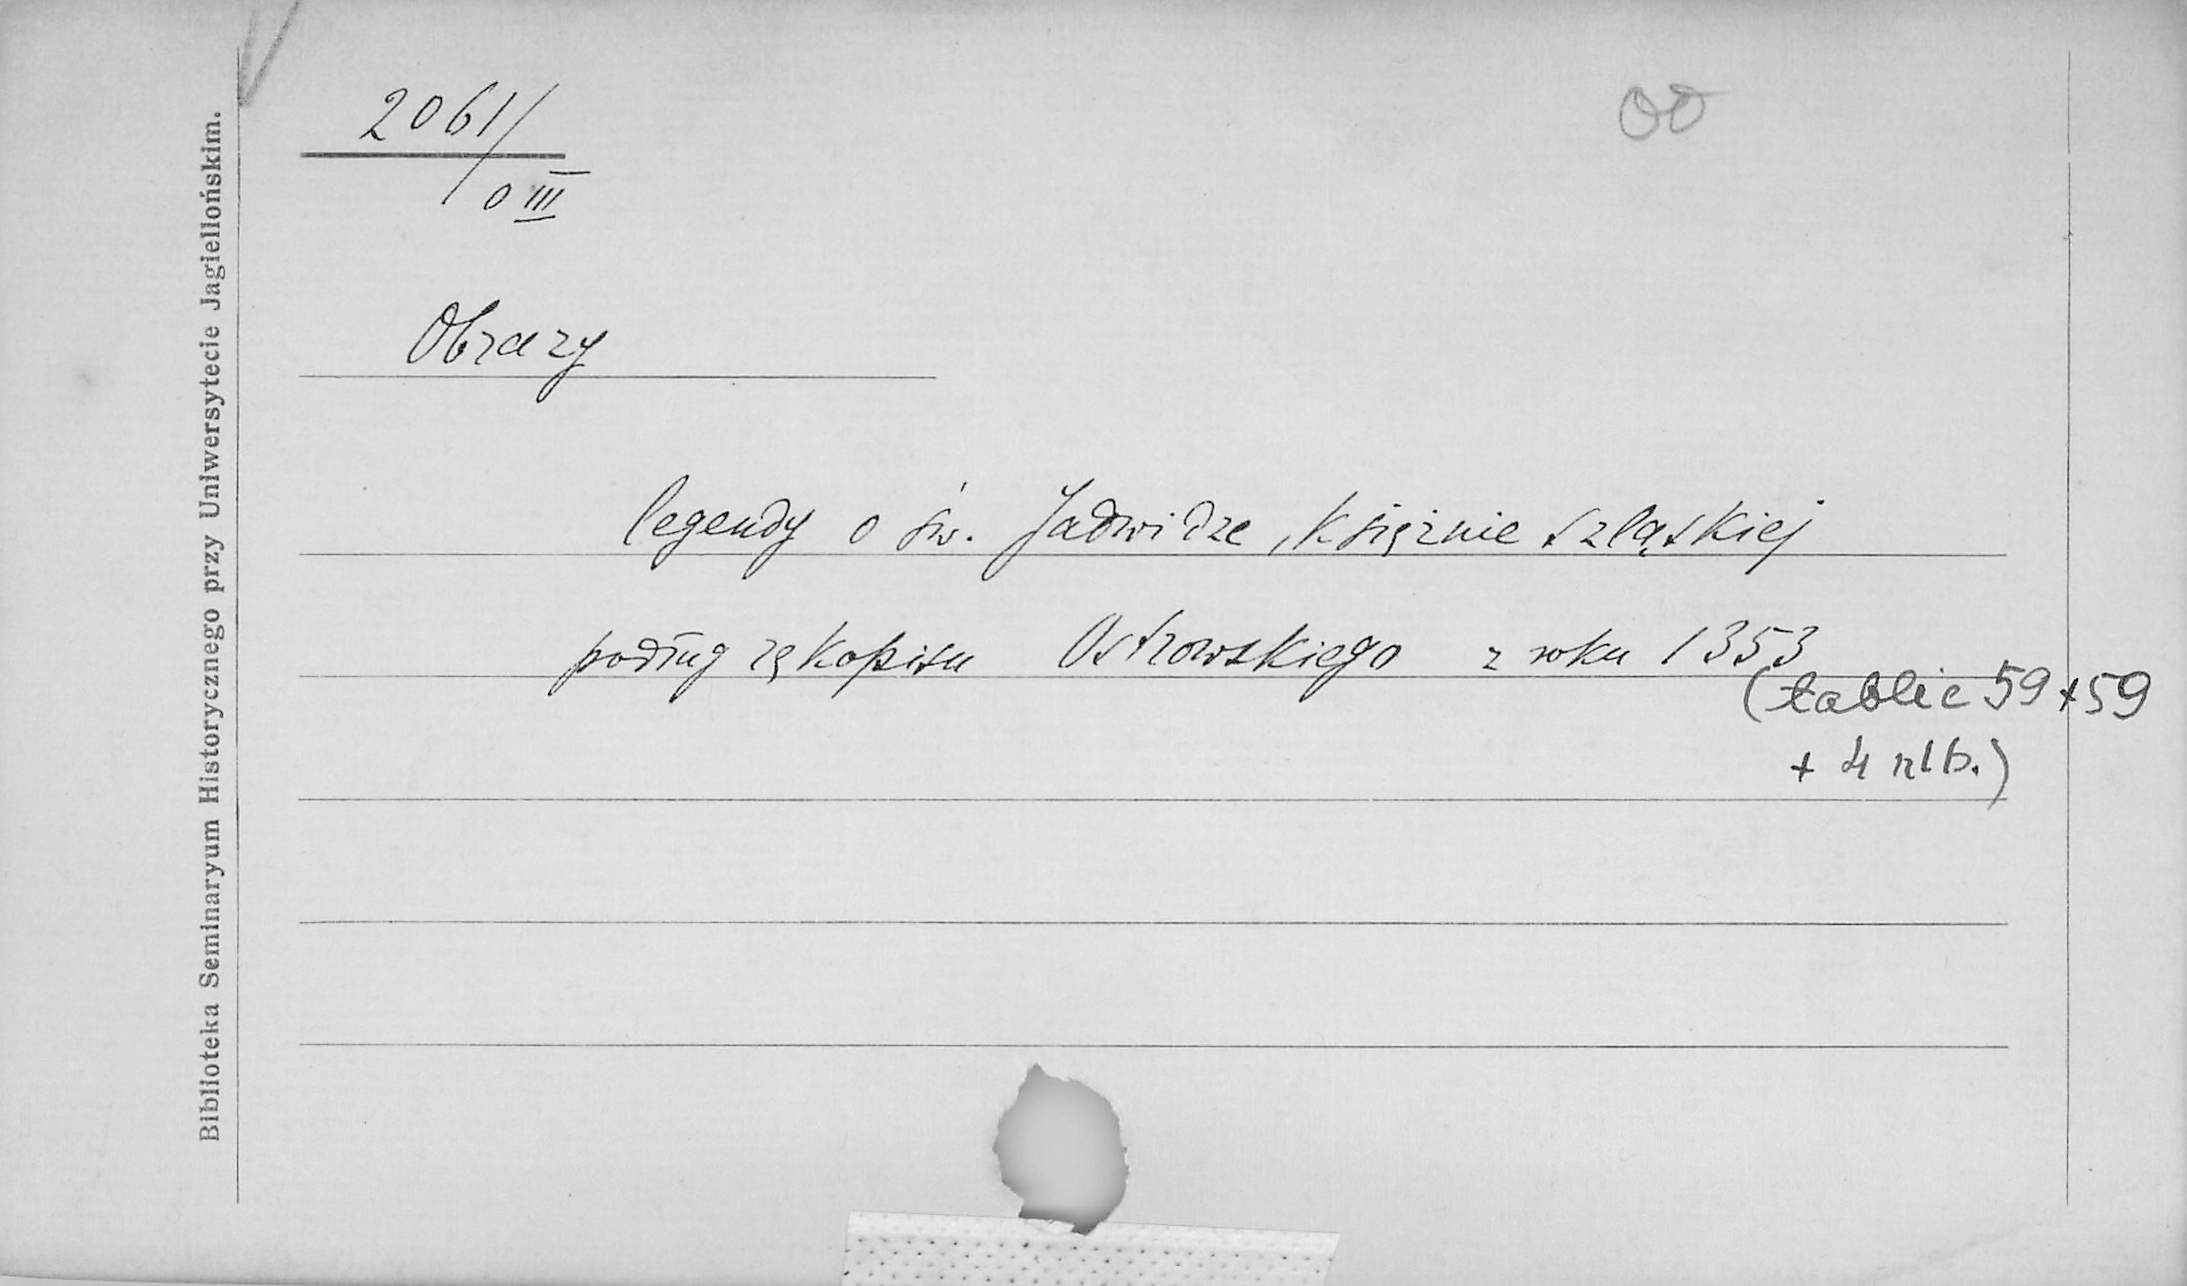 2061/
0 III
00
Obrazy
legendy o św. Jadwidze, księżnie szląskiej
podług rękopisu Ostrowskiego z roku 1353
(tablic 59+59
+ 4 nlb.)
Biblioteka Seminaryum Historycznego przy Uniwersytecie Jagiellońskim.